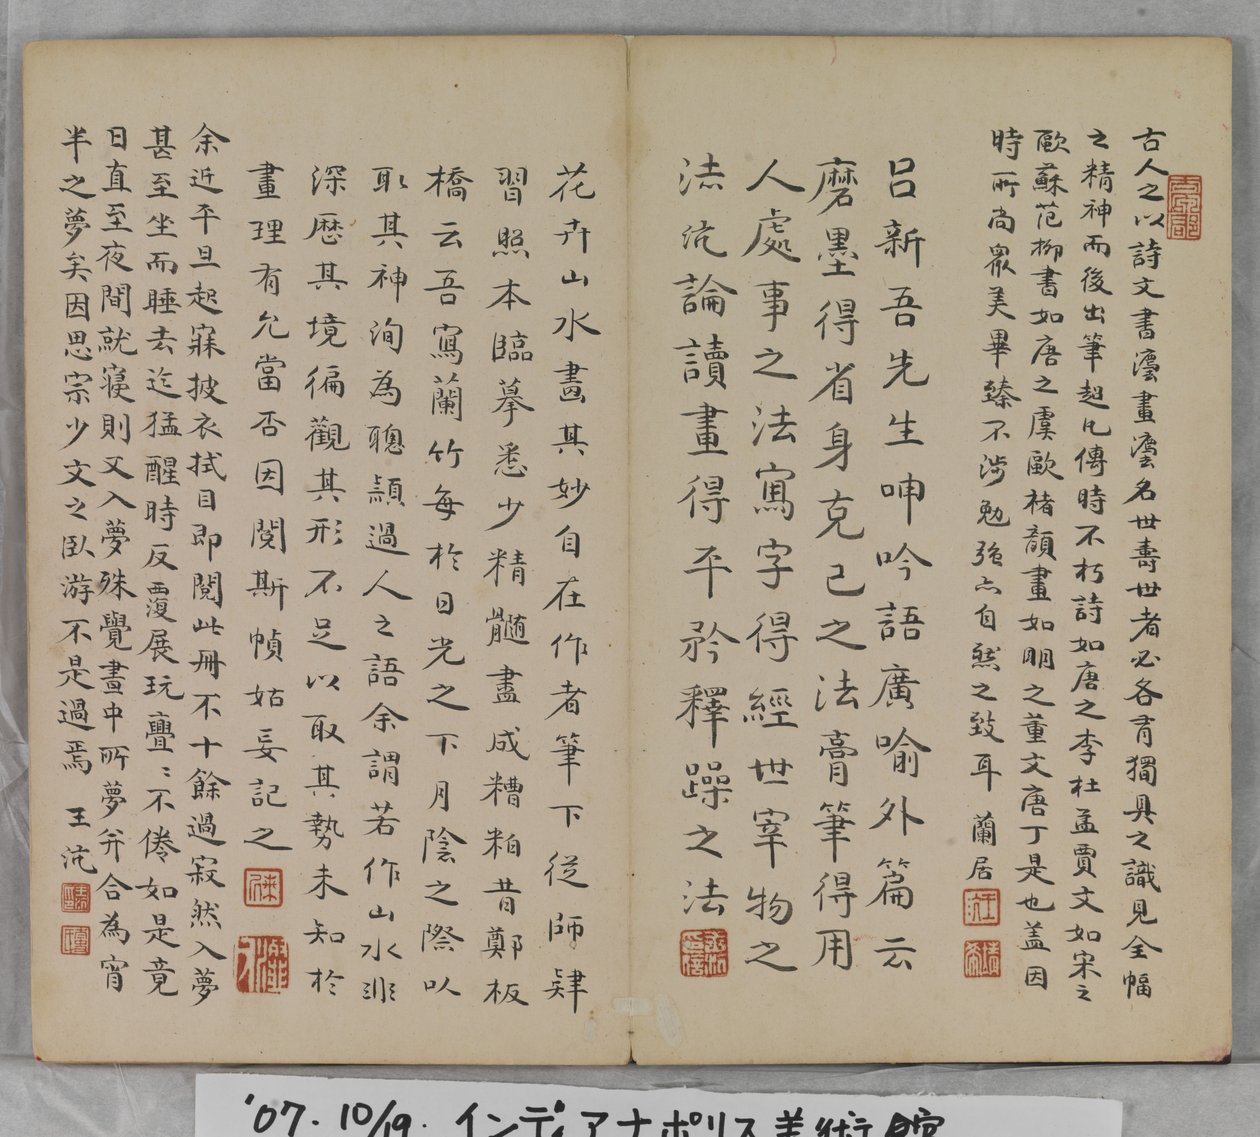 古人之以詩文書灋畫灋名世壽世者必各有獨具之識見全幅
之精神而後出筆超凡傳時不朽詩如唐之李杜孟賈文如宋之
歐蘇范柳書如唐之虞歐褚顏畫如明之董文唐丁是也盖因
時所尚眾美畢臻不涉勉強亦自然之致耳 蘭居
呂新吾先生呻吟語廣喻外篇云
磨墨得省身克己之法膏筆得用
人處事之法寫字得經世宰物之
法沇論讀畫得平矜釋躁之法
花卉山水畫其妙自在作者筆下從師肄
習照本臨摹悉少精髓盡成糟粕昔鄭板
橋云吾寫蘭竹每於日光之下月陰之際以
取其神洵為聰穎過人之語余謂若作山水非
深歷其境徧觀其形不足以取其勢未知於
畫理有允當否因閱斯幀姑妄記之
余近平旦起寐披衣拭目即閱此冊不十餘過寂然入夢
甚至坐而睡去迄猛醒時反覆展玩亹〻不倦如是竟
日直至夜間就寢則又入夢殊覺晝中所夢弁合為宵
半之夢矣因思宗少文之臥游不是過焉 王沇
'07.10/19. インディアナポリス美術館